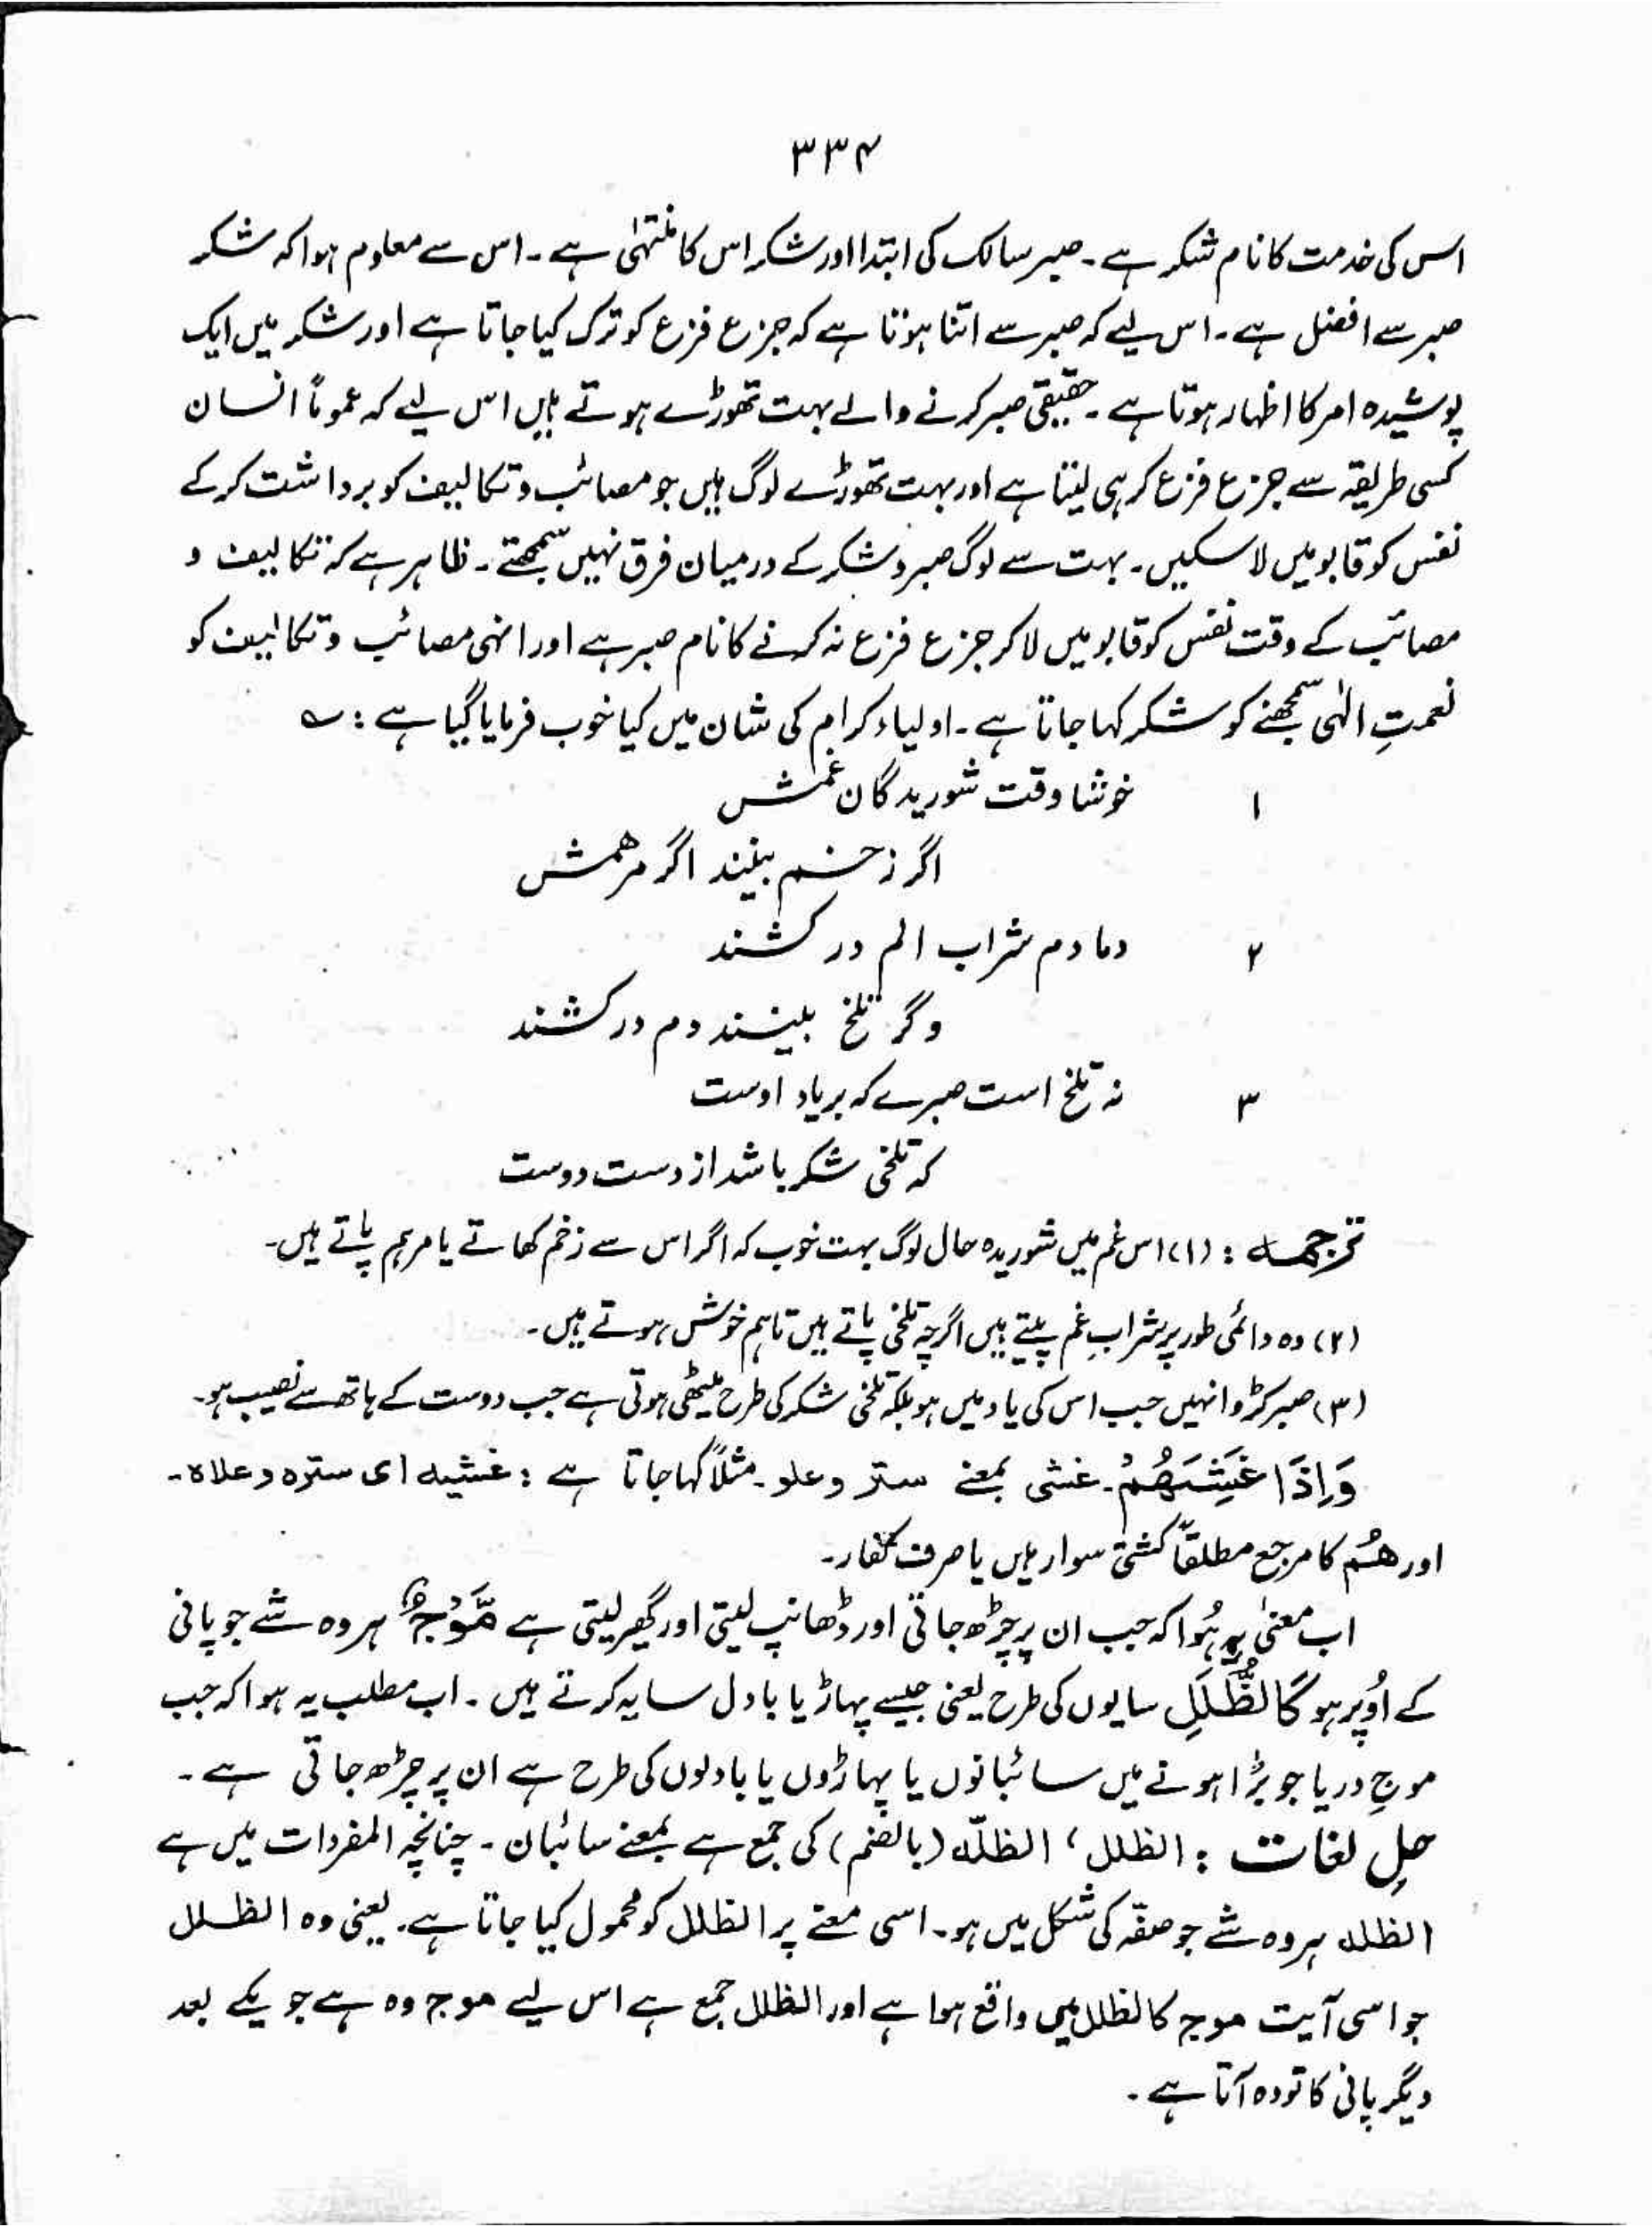 ۳۳۴
اس کی خدمت کا نام شکر ہے۔ صبر سالک کی ابتدا اور شکر اس کا منتہٰی ہے۔ اس سے معلوم ہوا کہ شکر
صبر سے افضل ہے۔ اس لیے کہ صبر سے اتنا ہوتا ہے کہ جزع فزع کو ترک کیا جاتا ہے اور شکر میں ایک
پوشیدہ امر کا اظہار ہوتا ہے۔ حقیقی صبر کرنے والے بہت تھوڑے ہوتے ہیں اس لیے کہ عموماً انسان
کسی طریقہ سے جزع فزع کر ہی لیتا ہے اور بہت تھوڑے لوگ ہیں جو مصائب و تکالیف کو برداشت کر کے
نفس کو قابو میں لا سکیں۔ بہت سے لوگ صبر و شکر کے درمیان فرق نہیں سمجھتے۔ ظاہر ہے کہ تکالیف و
مصائب کے وقت نفس کو قابو میں لا کر جزع فزع نہ کرنے کا نام صبر ہے اور انہی مصائب و تکالیف کو
نعمتِ الٰہی سمجھنے کو شکر کہا جاتا ہے۔ اولیاء کرام کی شان میں کیا خوب فرمایا گیا ہے : ؎
۱ خوشا وقت شوریدگان غمش
اگر زخم بینند اگر مرہمش
۲ دمادم شراب الم درکشند
وگر تلخ بینند دم درکشند
۳ نہ تلخ است صبرے کہ بریاد اوست
کہ تلخی شکر باشد از دست دوست
ترجمہ : (۱) اس غم میں شوریدہ حال لوگ بہت خوب کہ اگر اس سے زخم کھاتے یا مرہم پاتے ہیں۔
(۲) وہ دائمی طور پر شرابِ غم پیتے ہیں اگرچہ تلخی پاتے ہیں تاہم خوش ہوتے ہیں۔
(۳) صبر کڑوا نہیں جب اس کی یاد میں ہو بلکہ تلخی شکر کی طرح میٹھی ہوتی ہے جب دوست کے ہاتھ سے نصیب ہو۔
وَاِذَا غَشِیَھُمْ۔ غشی بمعنے ستر وعلو۔ مثلاً کہا جاتا ہے : غشیہ ای سترہ وعلاہ۔
اور ھُم کا مرجع مطلقاً کشتی سوار ہیں یا صرف کفار۔
اب معنیٰ یہ ہُوا کہ جب ان پر چڑھ جاتی اور ڈھانپ لیتی اور گھیر لیتی ہے مَّوْجٌ ہر وہ شے جو پانی
کے اُوپر ہو کَالظُّلَلِ سایوں کی طرح یعنی جیسے پہاڑ یا بادل سایہ کرتے ہیں۔ اب مطلب یہ ہوا کہ جب
موجِ دریا جو بڑا ہونے میں سائبانوں یا پہاڑوں یا بادلوں کی طرح ہے ان پر چڑھ جاتی ہے۔
حلِ لغات : الظلل ، الظلّۃ (بالضم) کی جمع ہے بمعنے سائبان۔ چنانچہ المفردات میں ہے
الظلۃ ہر وہ شے جو صفّہ کی شکل میں ہو۔ اسی معنے پر الظلل کو محمول کیا جاتا ہے۔ یعنی وہ الظلل
جو اسی آیت موج کالظلل میں واقع ہوا ہے اور الظلل جمع ہے اس لیے موج وہ ہے جو یکے بعد
دیگر پانی کا تودہ آتا ہے۔